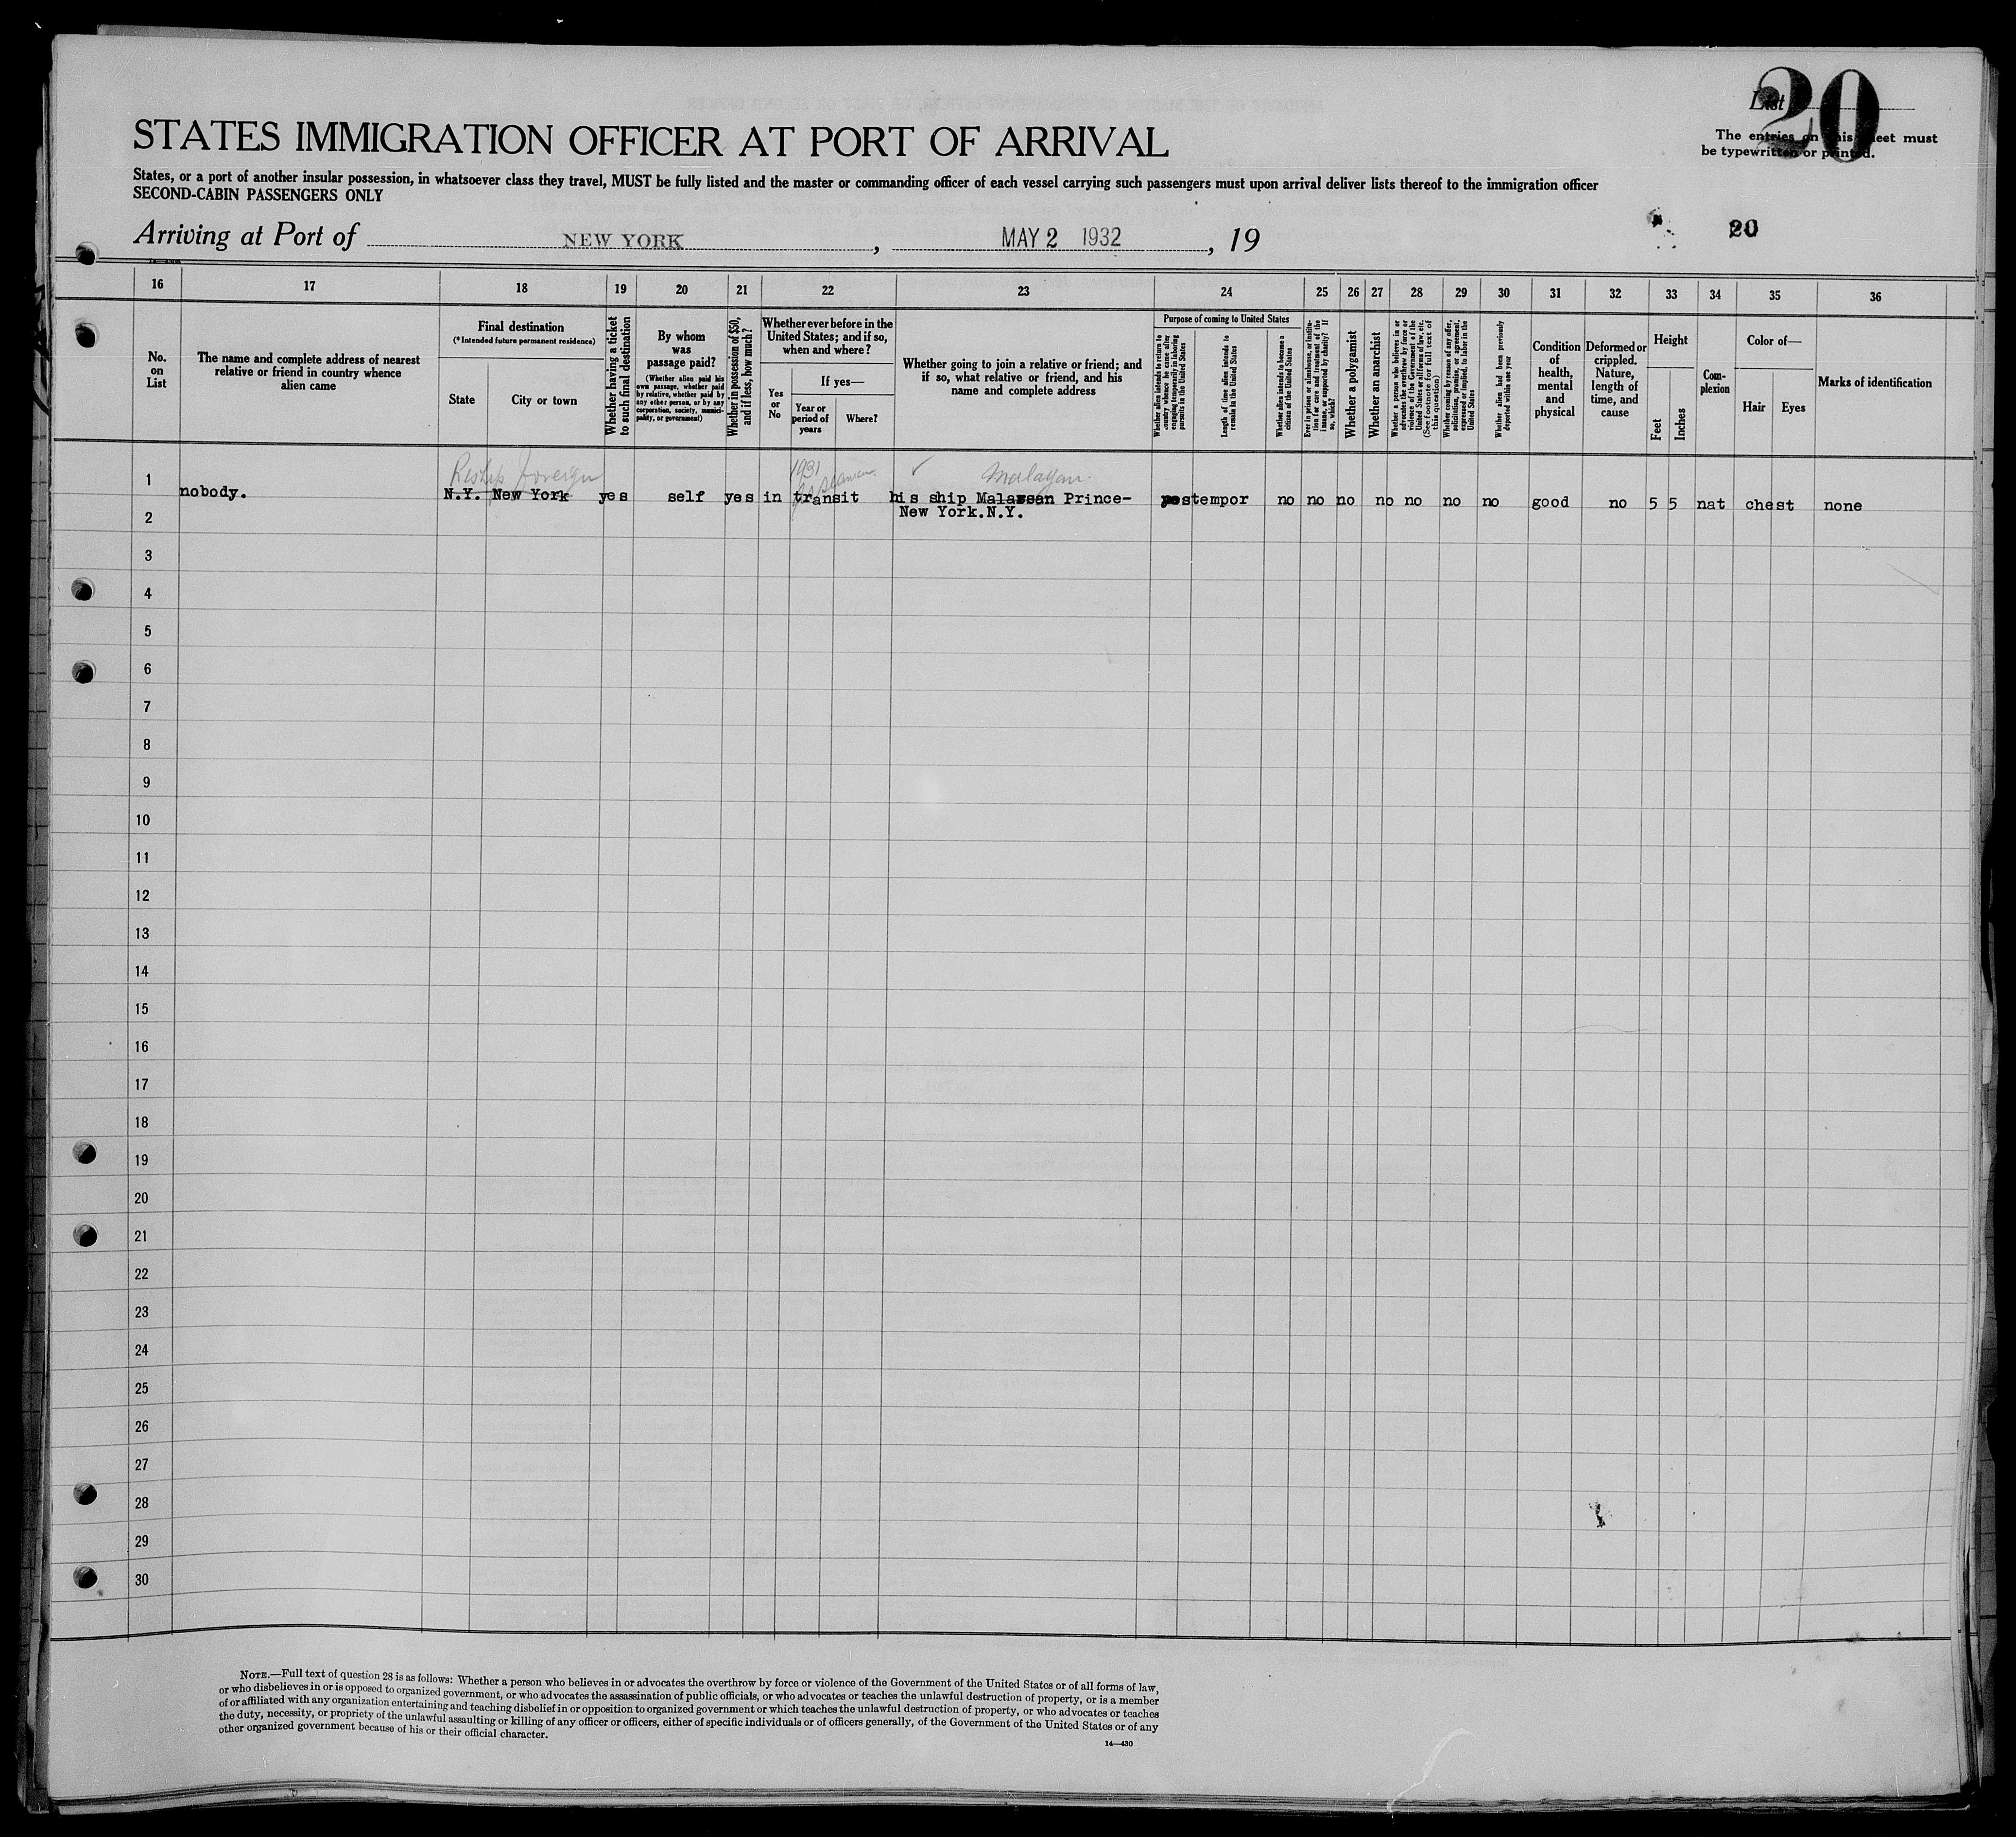 List 20
The entries on this sheet must
be typewritten or printed.
STATES IMMIGRATION OFFICER AT PORT OF ARRIVAL
States, or a port of another insular possession, in whatsoever class they travel, MUST be fully listed and the master or commanding officer of each vessel carrying such passengers must upon arrival deliver lists thereof to the immigration officer
SECOND-CABIN PASSENGERS ONLY
20
Arriving at Port of NEW YORK, MAY 2 1932, 19
16 17 18 19 20 21 22 23 24 25 26 27 28 29 30 31 32 33 34 35 36
No.
on
List
The name and complete address of nearest
relative or friend in country whence
alien came
Final destination
(*Intended future permanent residence)
State
City or town
Whether having a ticket
to such final destination
By whom
was
passage paid?
(Whether alien paid his
own passage, whether paid
by relative, whether paid by
any other person, or by any
corporation, society, munici-
pality, or government)
Whether in possession of $50,
and if less, how much?
Whether ever before in the
United States; and if so,
when and where?
Yes
or
No
If yes—
Year or
period of
years
Where?
Whether going to join a relative or friend; and
if so, what relative or friend, and his
name and complete address
Purpose of coming to United States
Whether alien intends to return to
country whence he came after
engaging temporarily in laboring
pursuits in the United States
Length of time alien intends to
remain in the United States
Whether alien intends to become a
citizen of the United States
Ever in prison or almshouse, or institu-
tion for care and treatment of the
insane, or supported by charity? If
so, which?
Whether a polygamist
Whether an anarchist
Whether a person who believes in or
advocates the overthrow by force or
violence of the Government of the
United States or all forms of law, etc.
(See footnote for full text of
this question)
Whether coming by reason of any offer,
solicitation, promise, or agreement,
expressed or implied, to labor in the
United States
Whether alien had been previously
deported within one year
Condition
of
health,
mental
and
physical
Deformed or
crippled.
Nature,
length of
time, and
cause
Height
Feet
Inches
Com-
plexion
Color of—
Hair
Eyes
Marks of identification
Reship foreign 1931 Malayan
1 nobody. N.Y. New York yes self yes in transit his ship Malassen Prince- yes tempor no no no no no no no good no 5 5 nat chest none
2 New York.N.Y.
3
4
5
6
7
8
9
10
11
12
13
14
15
16
17
18
19
20
21
22
23
24
25
26
27
28
29
30
NOTE.—Full text of question 28 is as follows: Whether a person who believes in or advocates the overthrow by force or violence of the Government of the United States or of all forms of law,
or who disbelieves in or is opposed to organized government, or who advocates the assassination of public officials, or who advocates or teaches the unlawful destruction of property, or is a member
of or affiliated with any organization entertaining and teaching disbelief in or opposition to organized government or which teaches the unlawful destruction of property, or who advocates or teaches
the duty, necessity, or propriety of the unlawful assaulting or killing of any officer or officers, either of specific individuals or of officers generally, of the Government of the United States or of any
other organized government because of his or their official character.
14—430